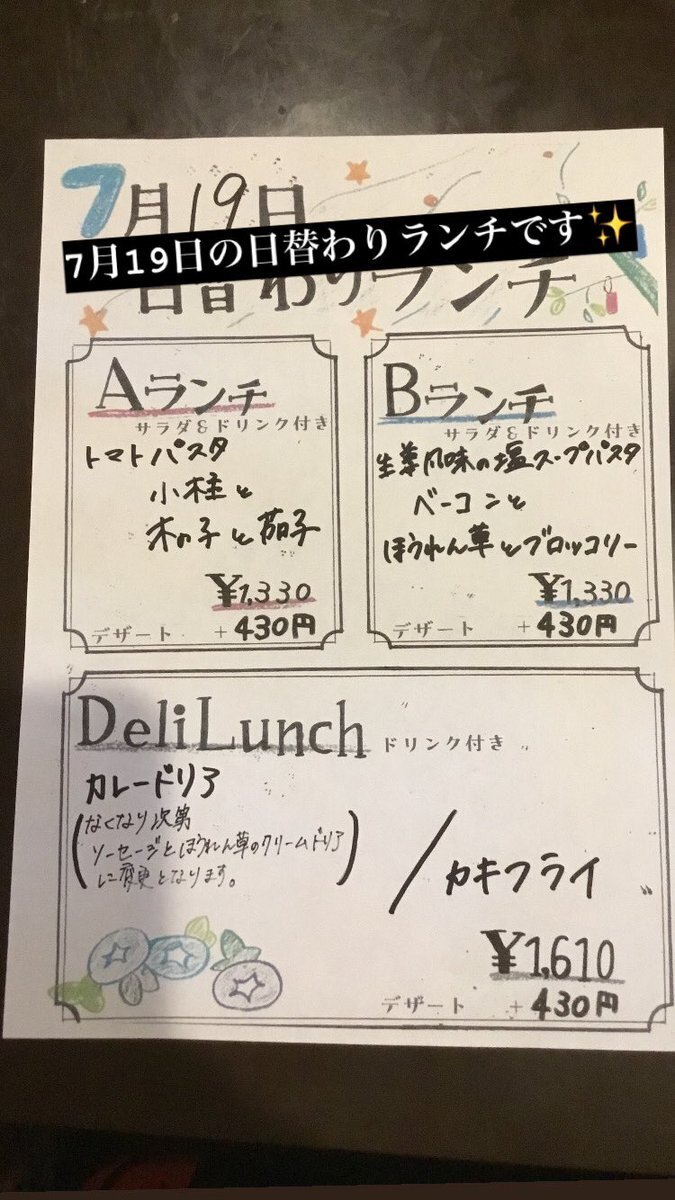 7月19日
7月19日の日替わりランチです✨
日替わりランチ
Aランチ
サラダ&ドリンク付き
トマトパスタ
小柱と
木の子と茄子
¥1,330
デザート +430円
Bランチ
サラダ&ドリンク付き
生姜風味の塩スープパスタ
ベーコンと
ほうれん草とブロッコリー
¥1,330
デザート +430円
Deli Lunch ドリンク付き
カレードリア
(なくなり次第
ソーセージとほうれん草のクリームドリア
に変更となります。)
/カキフライ
¥1,610
デザート +430円